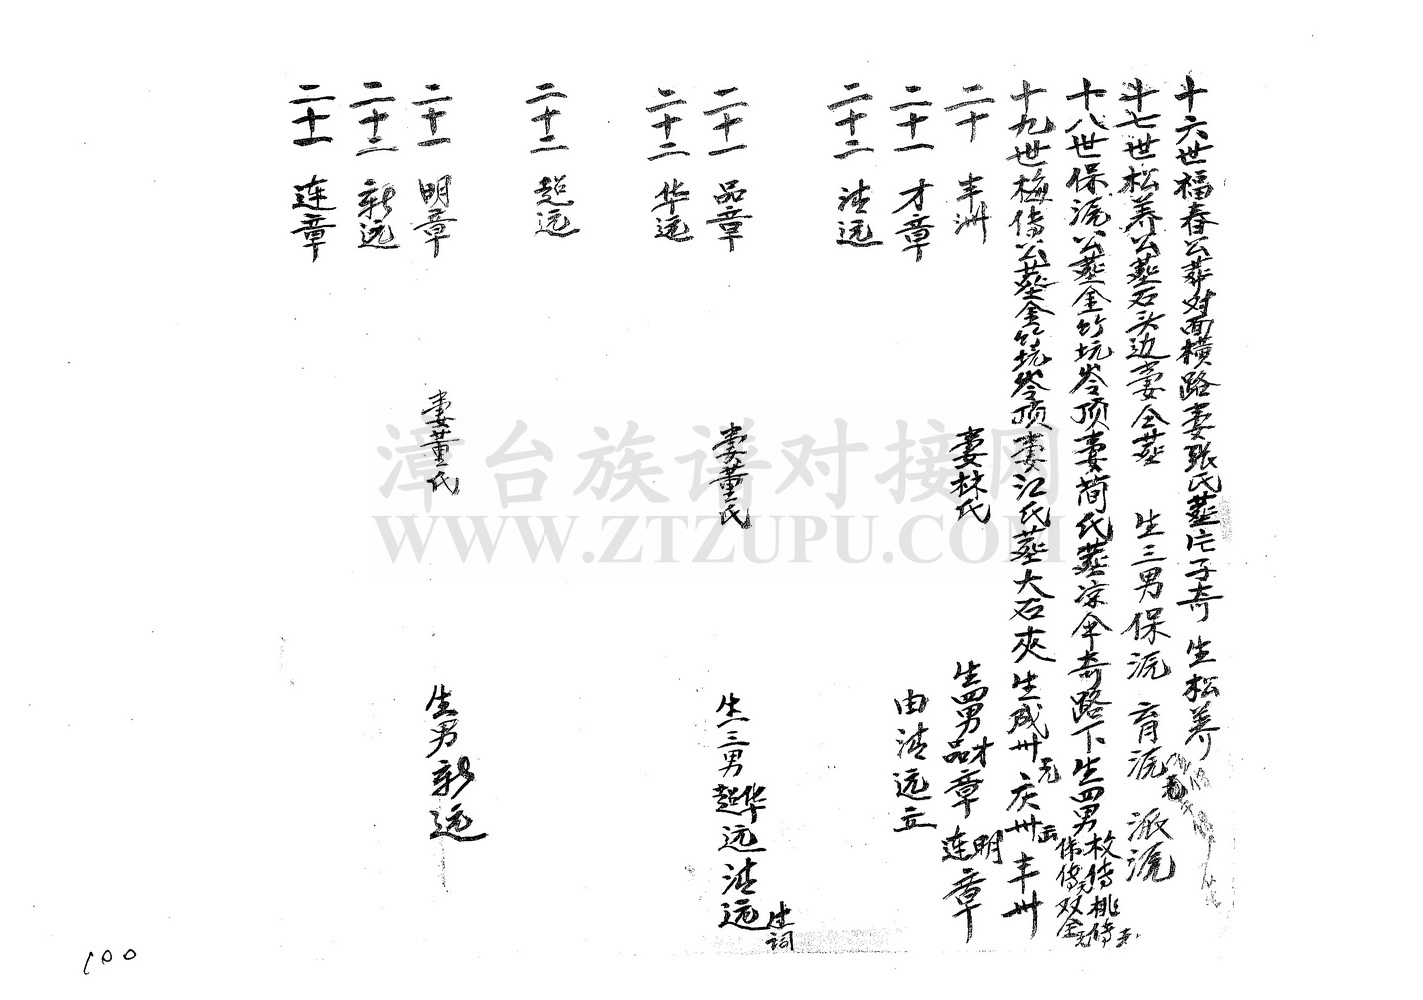 十六世福春公葬对面横路妻張氏葬庀子奇 生松养
十七世松养公葬石头边妻仝葬 生三男保浣 育浣 派浣
十八世保浣公葬金竹坑岺顶妻简氏葬凉伞奇路下生四男枚传桃传伟传双全
十九世梅传公葬金竹坑岺顶妻江氏葬大石夾生成卅 庆卅 丰卅
二十 丰洲 妻林氏 生四男才品章 明连章
二十一 才章 由沣远立
二十二 沣远
二十一 品章 妻董氏 生三男华超远沣远
二十二 华远
二十二 超远
二十一 明章 妻董氏 生男新远
二十二 新远
二十一 连章
漳台族谱对接网
WWW.ZTZUPU.COM
100